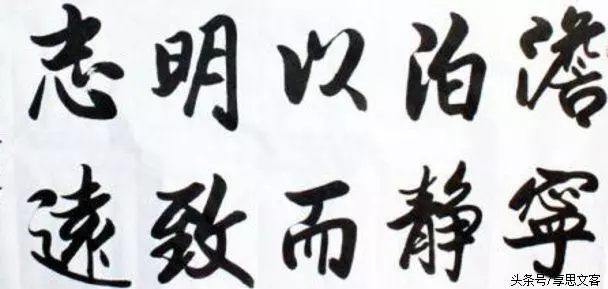 澹泊以明志
寧静而致遠
头条号/享思文客